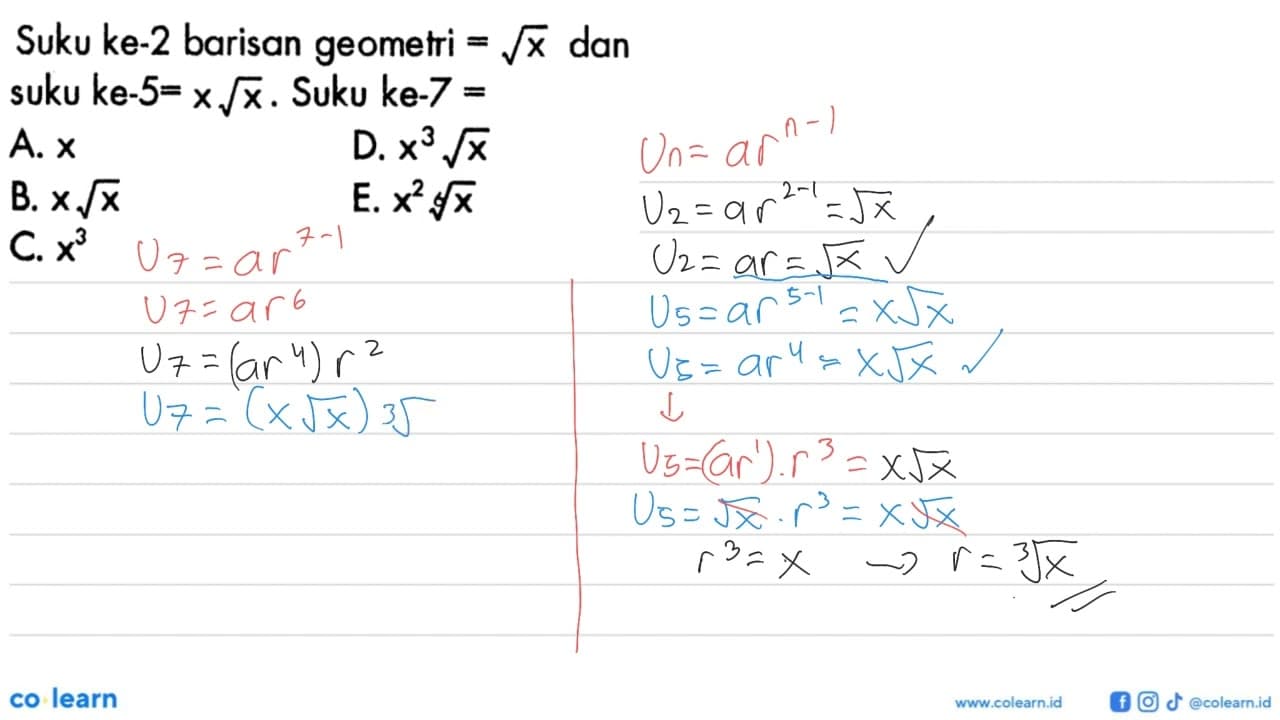 Suku ke-2 barisan geometri = √x dan
suku ke-5= x√x. Suku ke-7 =
A. x
D. x³√x
B. x√x
E. x² ⁶√x
C. x³
U7 = ar^(7-1)
U7 = ar⁶
U7 = (ar⁴) r²
U7 = (x√x) ³√
Un = ar^(n-1)
U2 = ar^(2-1) = √x
U2 = ar = √x ✓
U5 = ar^(5-1) = x√x
U5 = ar⁴ = x√x ✓
↓
U5 = (ar¹).r³ = x√x
U5 = √x . r³ = x√x
r³ = x → r = ³√x
co learn
www.colearn.id
@colearn.id